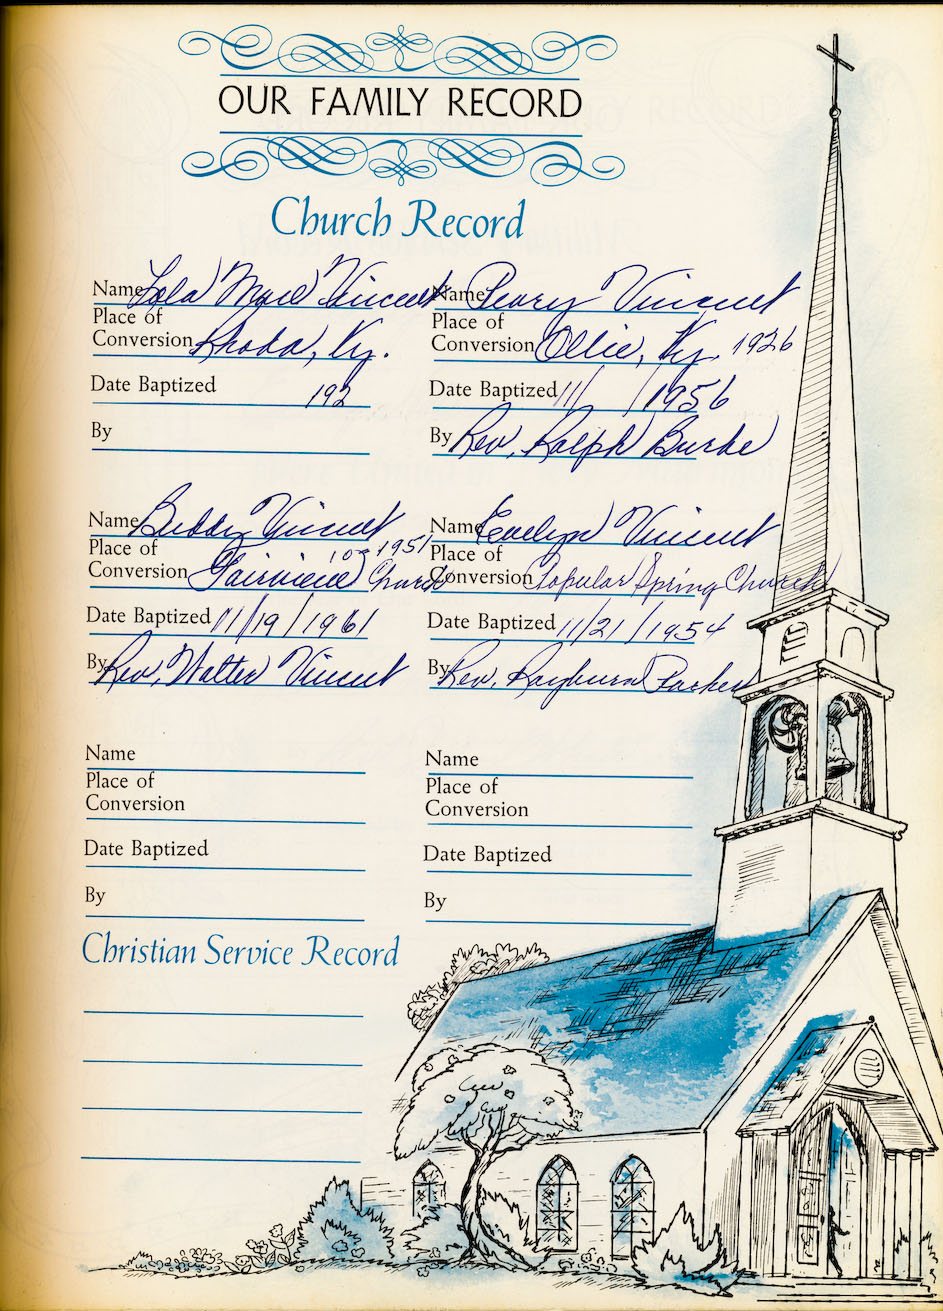 OUR FAMILY RECORD
Church Record
Name Lola Mae Vincent
Place of
Conversion Rhoda, Ky.
Date Baptized 192
By
Name Peary Vincent
Place of
Conversion Ollie, Ky. 1926
Date Baptized 11/ /1956
By Rev. Ralph Burke
Name Buddy Vincent
Place of 1951
Conversion Fairview Church
Date Baptized 11/19/1961
By Rev. Walter Vincent
Name Evelyn Vincent
Place of
Conversion Popular Spring Church
Date Baptized 11/21/1954
By Rev. Rayburn Parker
Name
Place of
Conversion
Date Baptized
By
Name
Place of
Conversion
Date Baptized
By
Christian Service Record